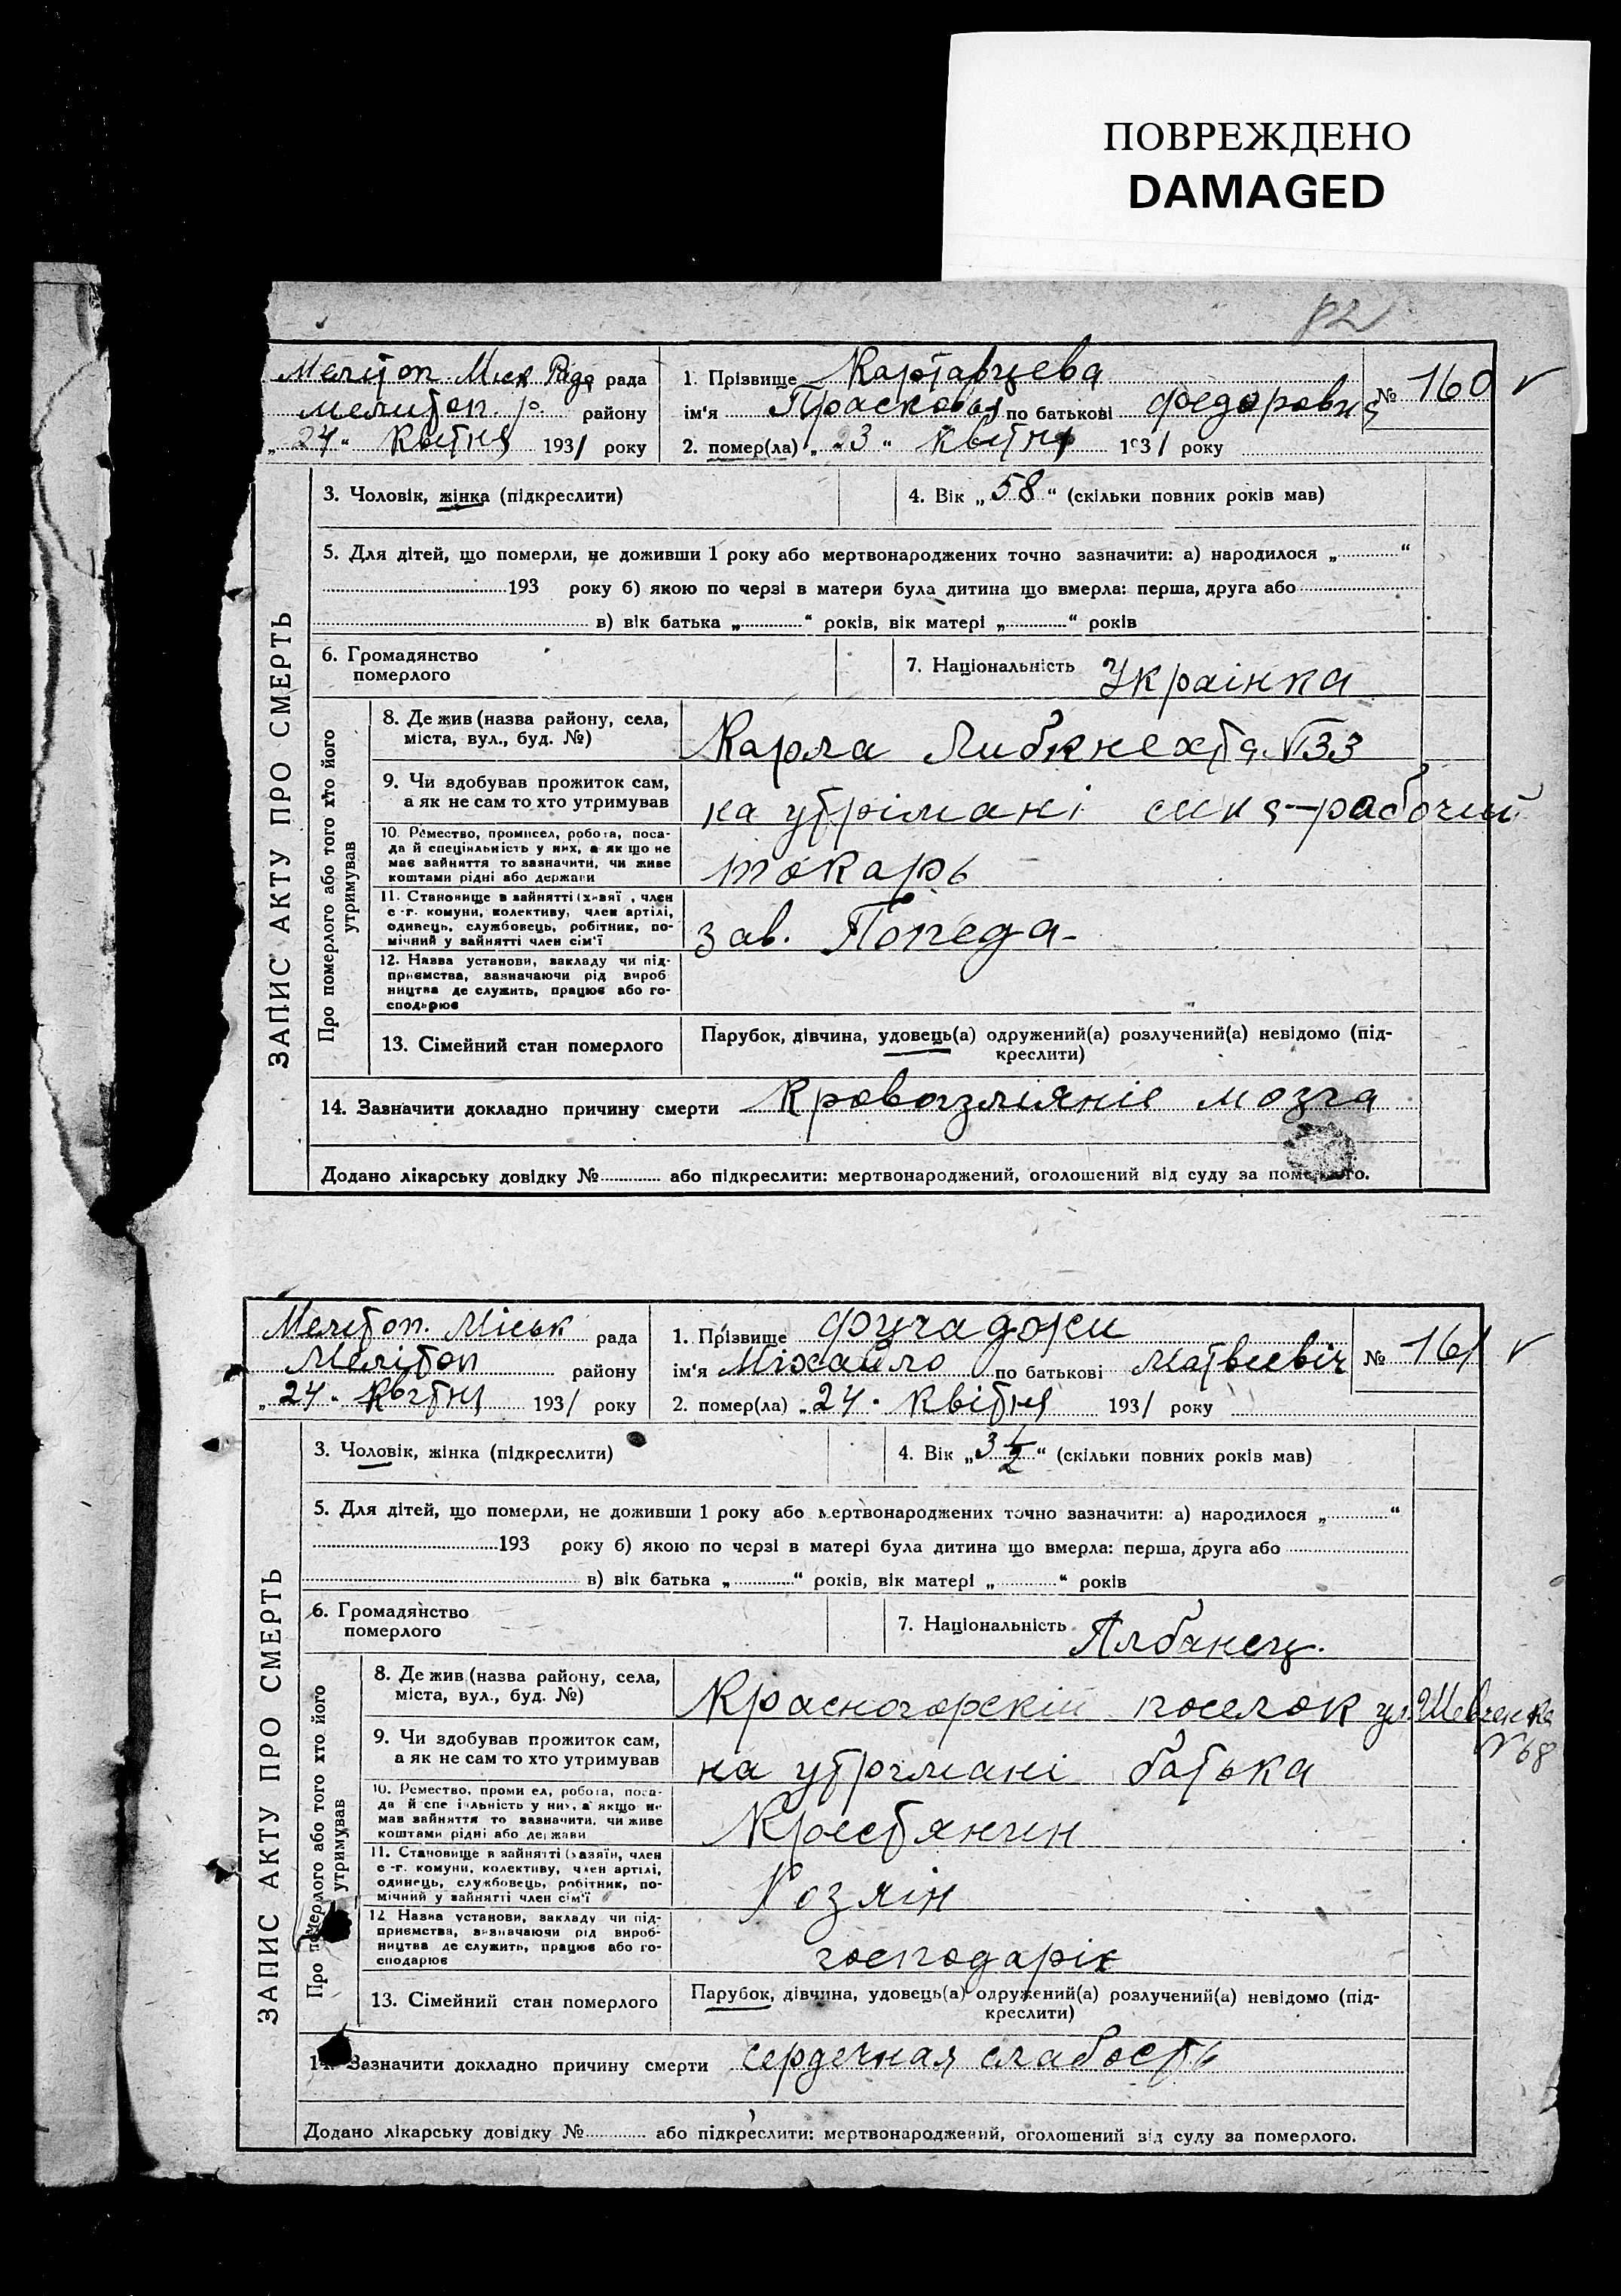 ПОВРЕЖДЕНО
DAMAGED
Меліт̄оп Міск Рада рада
Мелитоп. р. району
„ 24 “ Квітня 1931 року
1. Прізвище Картавцева
ім'я Прасковья по батькові Федоровна
№ 160
2. помер(ла) „ 23 “ Квітня 1931 року
ЗАПИС АКТУ ПРО СМЕРТЬ
3. Чоловік, жінка (підкреслити)
4. Вік „ 58 “ (скільки повних років мав)
5. Для дітей, що померли, не доживши 1 року або мертвонароджених точно зазначити: а) народилося „ “
193 року б) якою по черзі в матери була дитина що вмерла: перша, друга або
в) вік батька „ “ років, вік матері „ “ років
6. Громадянство
померлого
7. Національність Украінка
Про померлого або того хто його
утримував
8. Де жив (назва району, села,
міста, вул., буд. №)
Карла Либкнехта № 33
9. Чи здобував прожиток сам,
а як не сам то хто утримував
на утрімані сина-рабочий
10. Ремество, промисел, робота, поса-
да й спеціяльність у них, а як що не
має зайняття то зазначити, чи живе
коштами рідні або держави
токарь
11. Становище в зайнятті (хазяї, член
с.-г. комуни, колективу, член артілі,
одинець, службовець, робітник, по-
мічний у зайнятті член сім'ї
зав.
12. Назва установи, закладу чи під-
приємства, зазначаючи рід вироб
ництва де служить, працює або го-
сподарює
13. Сімейний стан померлого
Парубок, дівчина, удовець(а) одружений(а) розлучений(а) невідомо (під-
креслити)
14. Зазначити докладно причину смерти Кровоизліяніе мозга
Додано лікарську довідку № або підкреслити: мертвонароджений, оголошений від суду за померлого.
Мелітоп. Міськ рада
Мелітоп району
„ 24 “ Квітня 1931 року
1. Прізвище Фучаджи
ім'я Міхайло по батькові Матвиевіч
№ 161
2. помер(ла) „ 24 “ Квітня 1931 року
ЗАПИС АКТУ ПРО СМЕРТЬ
3. Чоловік, жінка (підкреслити)
4. Вік „ 3 1/2 “ (скільки повних років мав)
5. Для дітей, що померли, не доживши 1 року або мертвонароджених точно зазначити: а) народилося „ “
193 року б) якою по черзі в матері була дитина що вмерла: перша, друга або
в) вік батька „ “ років, вік матері „ “ років
6. Громадянство
померлого
7. Національність Албанец.
Про померлого або того хто його
утримував
8. Де жив (назва району, села,
міста, вул., буд. №)
Красногорскій поселок ул. Шевченка
№ 68
9. Чи здобував прожиток сам,
а як не сам то хто утримував
на утрімані батька
10. Ремество, промисел, робота, поса-
да й спеціяльність у них, а якщо не
мав зайняття то зазначити, чи живе
коштами рідні або держави
Крестянин
11. Становище в зайнятті (хазяїн, член
с.-г. комуни, колективу, член артілі,
одинець, службовець, робітник, по-
мічний у зайнятті член сім'ї
Хозяін
12. Назва установи, закладу чи під-
приємства, зазначаючи рід вироб-
ництва де служить, працює або го-
сподарює
господаріє
13. Сімейний стан померлого
Парубок, дівчина, удовець(а) одружений(а) розлучений(а) невідомо (під-
креслити)
14. Зазначити докладно причину смерти сердечная слабость
Додано лікарську довідку № або підкреслити: мертвонароджений, оголошений від суду за померлого.